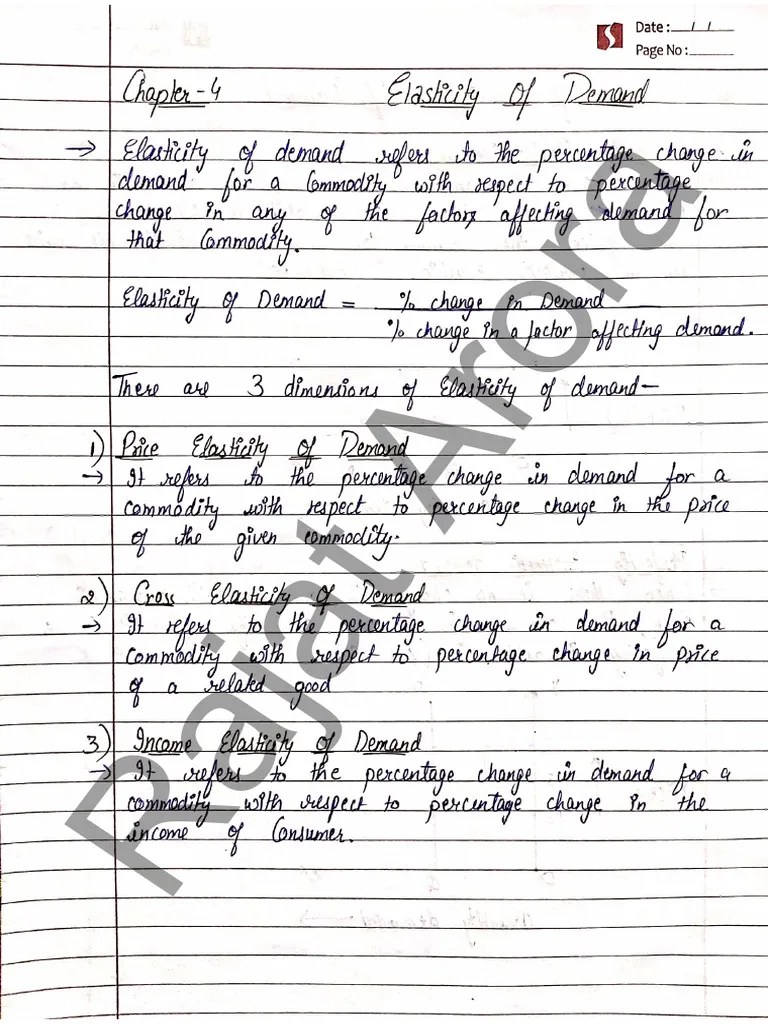 Date: / /
Page No:
Chapter-4 Elasticity Of Demand
→ Elasticity of demand refers to the percentage change in
demand for a Commodity with respect to percentage
change in any of the factors affecting demand for
that Commodity.
Elasticity of Demand = % change in Demand
% change in a factor affecting demand.
There are 3 dimensions of Elasticity of demand—
1) Price Elasticity of Demand
→ It refers to the percentage change in demand for a
commodity with respect to percentage change in the price
of the given commodity.
2) Cross Elasticity of Demand
→ It refers to the percentage change in demand for a
commodity with respect to percentage change in price
of a related good
3) Income Elasticity of Demand
→ It refers to the percentage change in demand for a
commodity with respect to percentage change in the
income of Consumer.
Rajat Arora